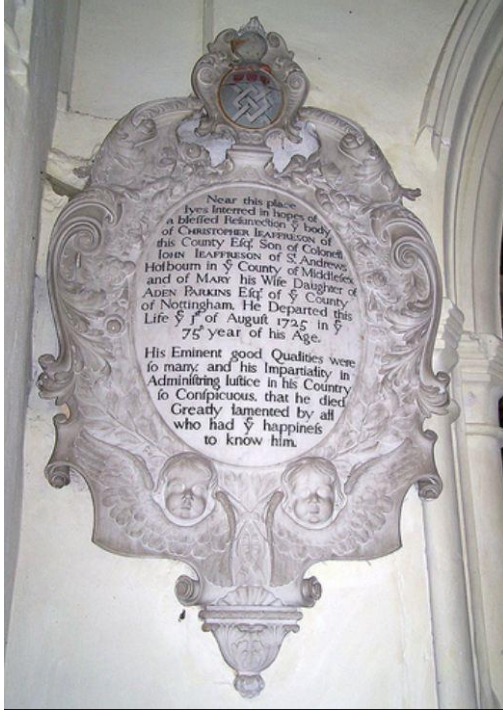 Near this place
lyes Interred in hopes of
a bleſsed Reſurrection yͤ body
of CHRISTOPHER IEAFFRESON of
this County Eſqʳ. Son of Colonell
IOHN IEAFFRESON of Sᵗ. Andrews
Holbourn in yͤ County of Middleſex
and of MARY his Wife Daughter of
ADEN PARKINS Eſqʳ. of yͤ County
of Nottingham. He Departed this
Life yͤ 1ˢᵗ of Auguſt 1725 in yͤ
75ᵗʰ year of his Age.
His Eminent good Qualities were
ſo many, and his Impartiality in
Adminiſtring Iuſtice in his Country
ſo Conſpicuous, that he died
Greatly lamented by all
who had yͤ happineſs
to know him.